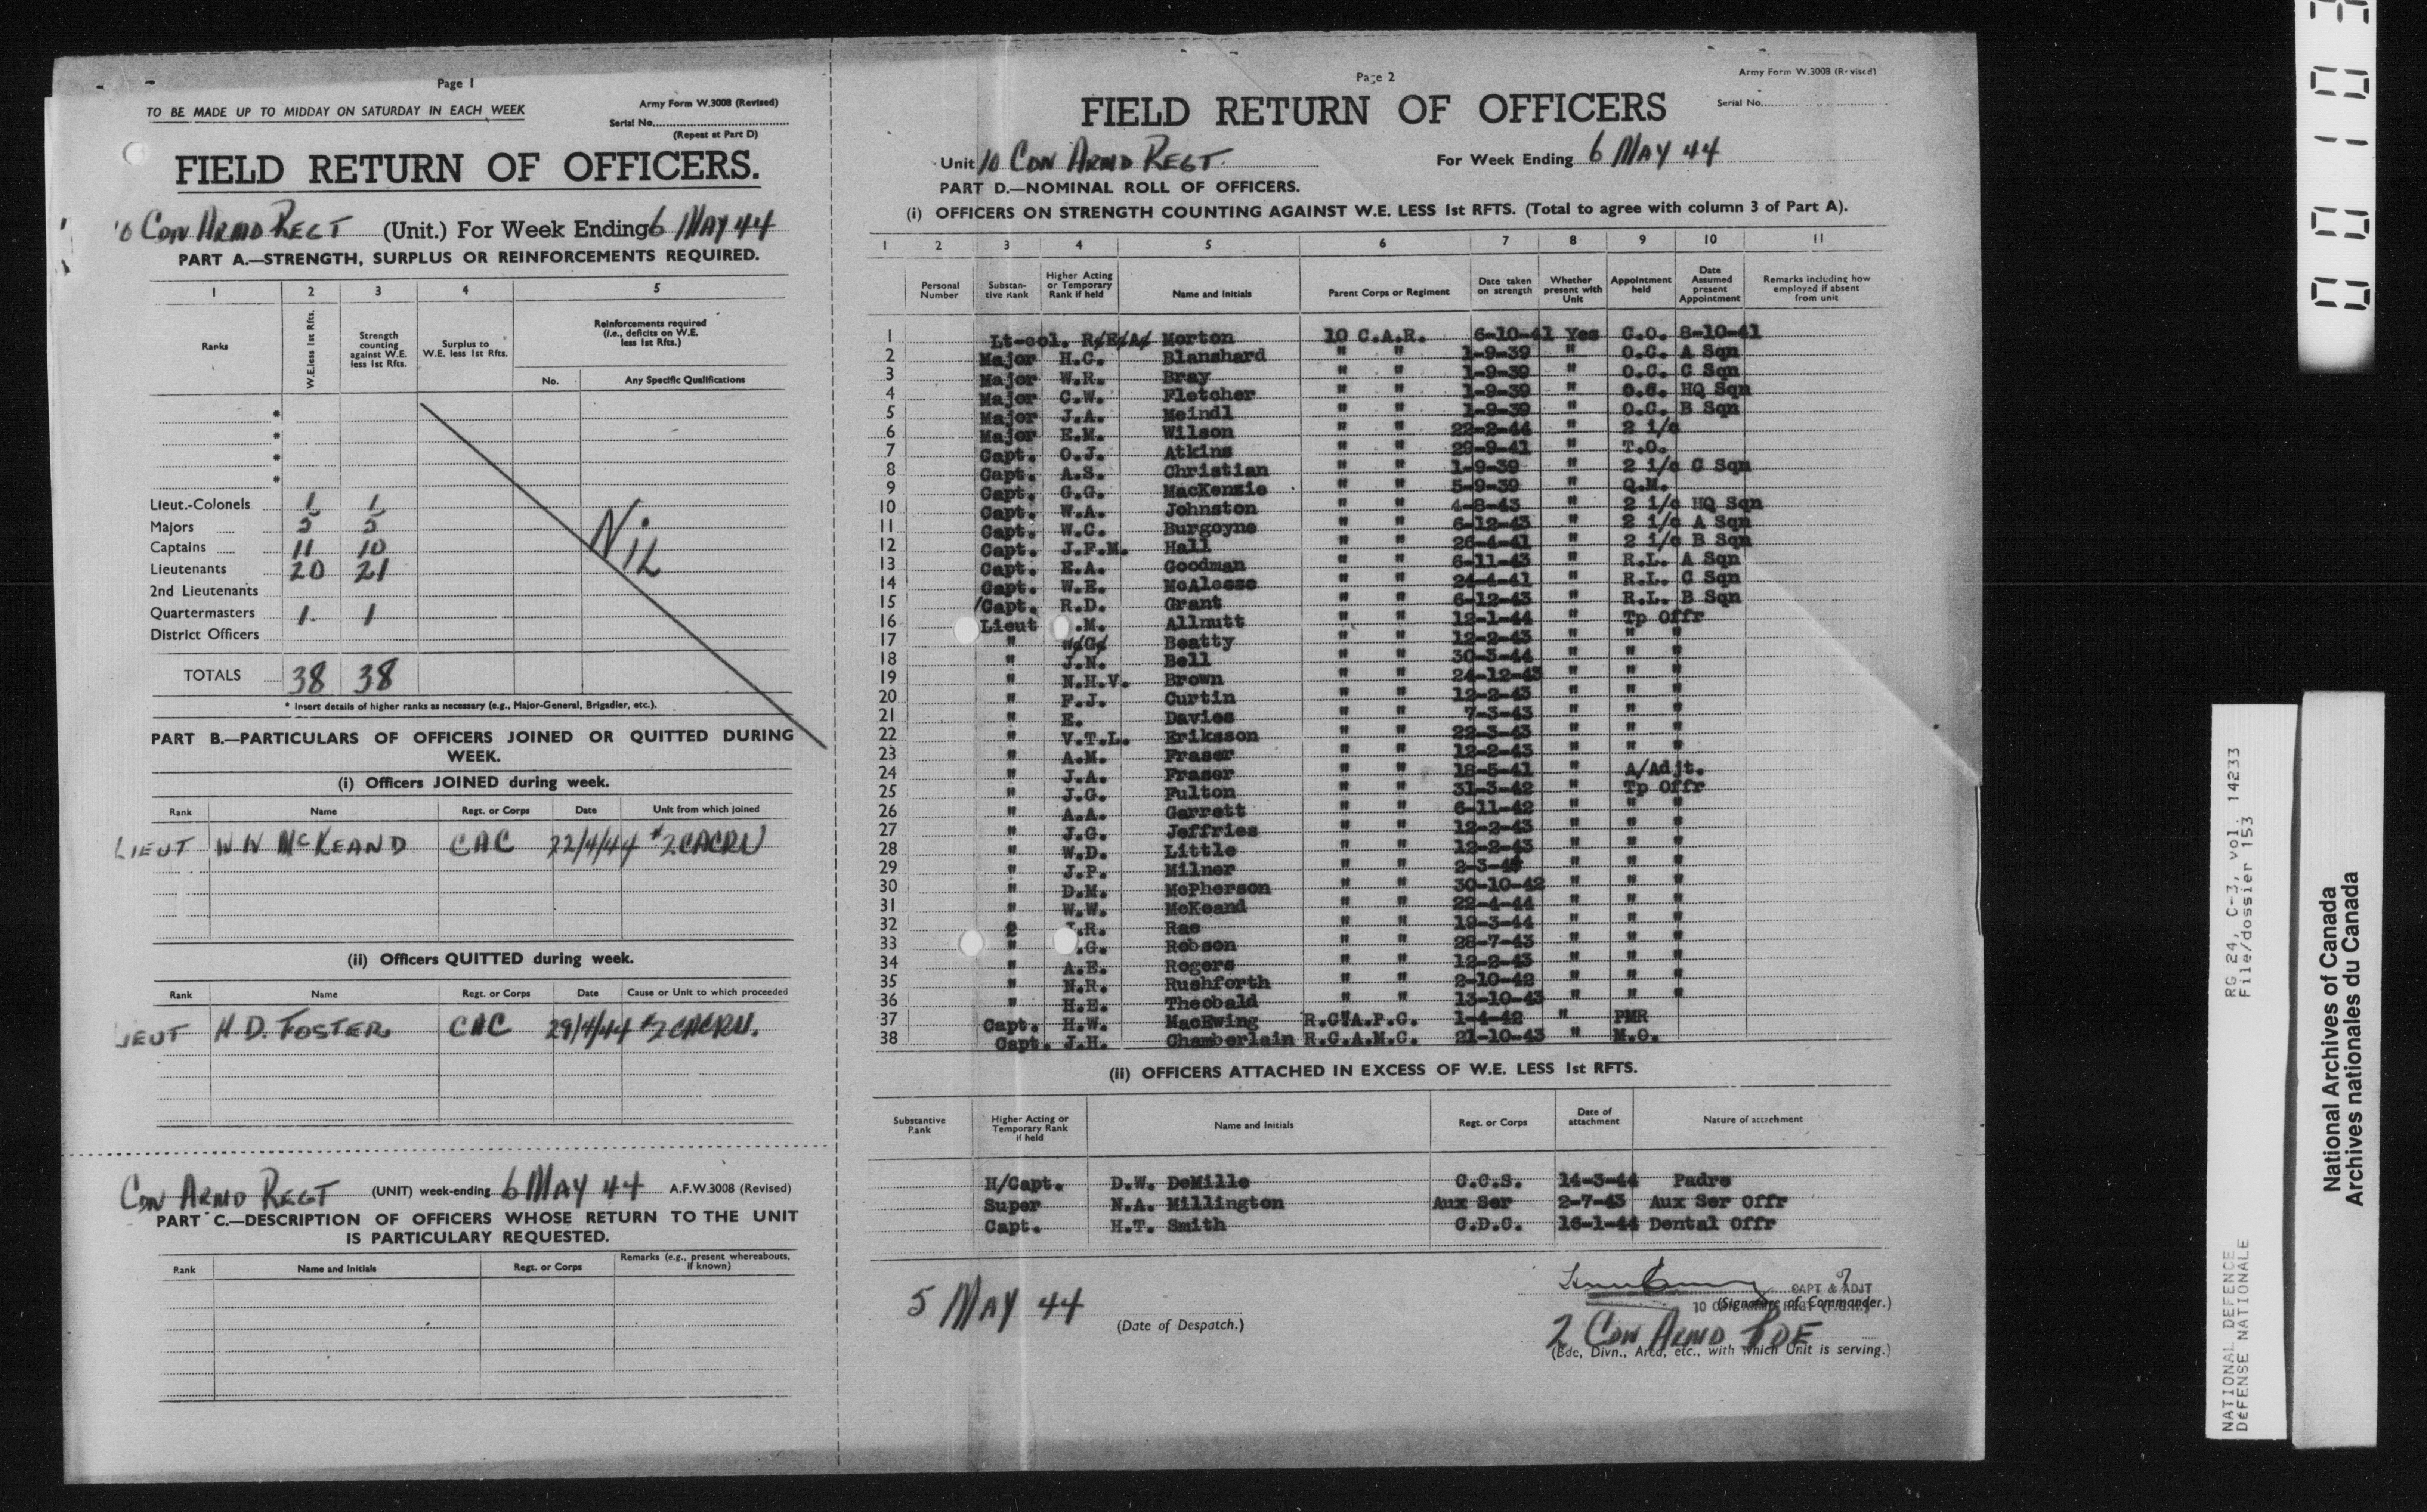 Page 1
TO BE MADE UP TO MIDDAY ON SATURDAY IN EACH WEEK
Army Form W.3008 (Revised)
Serial No.
(Repeat at Part D)
FIELD RETURN OF OFFICERS.
10 CDN ARMD REGT (Unit.) For Week Ending 6 MAY 44
PART A.—STRENGTH, SURPLUS OR REINFORCEMENTS REQUIRED.
1 2 3 4 5
Ranks W.E. less 1st Rfts. Strength counting against W.E. less 1st Rfts. Surplus to W.E. less 1st Rfts. Reinforcements required (i.e., deficits on W.E. less 1st Rfts.)
No. Any Specific Qualifications
*
*
*
*
Lieut.-Colonels 1 1
Majors 5 5
Captains 11 10
Lieutenants 20 21
2nd Lieutenants
Quartermasters 1 1
District Officers
NIL
TOTALS 38 38
* Insert details of higher ranks as necessary (e.g., Major-General, Brigadier, etc.).
PART B.—PARTICULARS OF OFFICERS JOINED OR QUITTED DURING
WEEK.
(i) Officers JOINED during week.
Rank Name Regt. or Corps Date Unit from which joined
LIEUT W W McKEAND CAC 22/4/44 #2 CACRU
(ii) Officers QUITTED during week.
Rank Name Regt. or Corps Date Cause or Unit to which proceeded
LIEUT H D. FOSTER CAC 29/4/44 #2 CACRU.
CDN ARMD REGT (UNIT) week-ending 6 MAY 44 A.F.W.3008 (Revised)
PART C.—DESCRIPTION OF OFFICERS WHOSE RETURN TO THE UNIT
IS PARTICULARY REQUESTED.
Rank Name and Initials Regt. or Corps Remarks (e.g., present whereabouts, if known)
Page 2
Army Form W.3008 (Revised)
Serial No.
FIELD RETURN OF OFFICERS
Unit 10 CDN ARMD REGT. For Week Ending 6 MAY 44
PART D.—NOMINAL ROLL OF OFFICERS.
(i) OFFICERS ON STRENGTH COUNTING AGAINST W.E. LESS 1st RFTS. (Total to agree with column 3 of Part A).
1 2 3 4 5 6 7 8 9 10 11
Personal Number Substantive Rank Higher Acting or Temporary Rank if held Name and Initials Parent Corps or Regiment Date taken on strength Whether present with Unit Appointment held Date Assumed present Appointment Remarks including how employed if absent from unit
1 Lt-col. R.E.A. Morton 10 C.A.R. 6-10-41 Yes C.O. 8-10-41
2 Major H.C. Blanshard " " 1-9-39 " O.C. A Sqn
3 Major W.R. Bray " " 1-9-39 " O.C. C Sqn
4 Major C.W. Fletcher " " 1-9-39 " O.C. HQ Sqn
5 Major J.A. Meindl " " 1-9-39 " O.C. B Sqn
6 Major E.M. Wilson " " 22-2-44 " 2 i/c
7 Capt. O.J. Atkins " " 29-9-41 " T.O.
8 Capt. A.S. Christian " " 1-9-39 " 2 i/c C Sqn
9 Capt. G.G. MacKenzie " " 5-9-39 " Q.M.
10 Capt. W.A. Johnston " " 4-8-43 " 2 i/c HQ Sqn
11 Capt. W.C. Burgoyne " " 6-12-43 " 2 i/c A Sqn
12 Capt. J.F.M. Hall " " 26-4-41 " 2 i/c B Sqn
13 Capt. E.A. Goodman " " 6-11-43 " R.L. A Sqn
14 Capt. W.E. McAleese " " 24-4-41 " R.L. C Sqn
15 /Capt. R.D. Grant " " 6-12-43 " R.L. B Sqn
16 Lieut .M. Allnutt " " 12-1-44 " Tp Offr
17 " W.G. Beatty " " 12-2-43 " " "
18 " J.N. Bell " " 30-3-44 " " "
19 " N.H.V. Brown " " 24-12-43 " " "
20 " F.J. Curtin " " 12-2-43 " " "
21 " E. Davies " " 7-3-43 " " "
22 " V.T.L. Eriksson " " 22-3-43 " " "
23 " A.M. Fraser " " 12-2-43 " " "
24 " J.A. Fraser " " 18-5-41 " A/Adjt.
25 " J.G. Fulton " " 31-3-42 " Tp Offr
26 " A.A. Garrett " " 6-11-42 " " "
27 " J.G. Jeffries " " 12-2-43 " " "
28 " W.D. Little " " 12-2-43 " " "
29 " J.P. Milner " " " " "
30 " D.M. McPherson " " 30-10-42 " " "
31 " W.W. McKeand " " 22-4-44 " " "
32 .R. Rae " " 19-3-44 " " "
33 " .G. Robson " " 28-7-43 " " "
34 " A.E. Rogers " " 12-2-43 " " "
35 " N.R. Rushforth " " 2-10-42 " " "
36 " H.E. Theobald " " 13-10-43 " " "
37 Capt. H.W. MacEwing R.C.A.P.C. 1-4-42 " PMR
38 Capt. J.H. Chamberlain R.C.A.M.C. 21-10-43 " M.O.
(ii) OFFICERS ATTACHED IN EXCESS OF W.E. LESS 1st RFTS.
Substantive Rank Higher Acting or Temporary Rank if held Name and Initials Regt. or Corps Date of attachment Nature of attachment
H/Capt. D.W. DeMille C.C.S. 14-3-44 Padre
Super N.A. Millington Aux Ser 2-7-43 Aux Ser Offr
Capt. H.T. Smith C.D.C. 16-1-44 Dental Offr
5 MAY 44
(Date of Despatch.)
CAPT & ADJT
(Signature of Commander.)
2 CDN ARMD BDE
(Bde, Divn., Area, etc., with which Unit is serving.)
RG 24, C-3, vol. 14233
File/dossier 153
NATIONAL DEFENCE
DÉFENSE NATIONALE
National Archives of Canada
Archives nationales du Canada